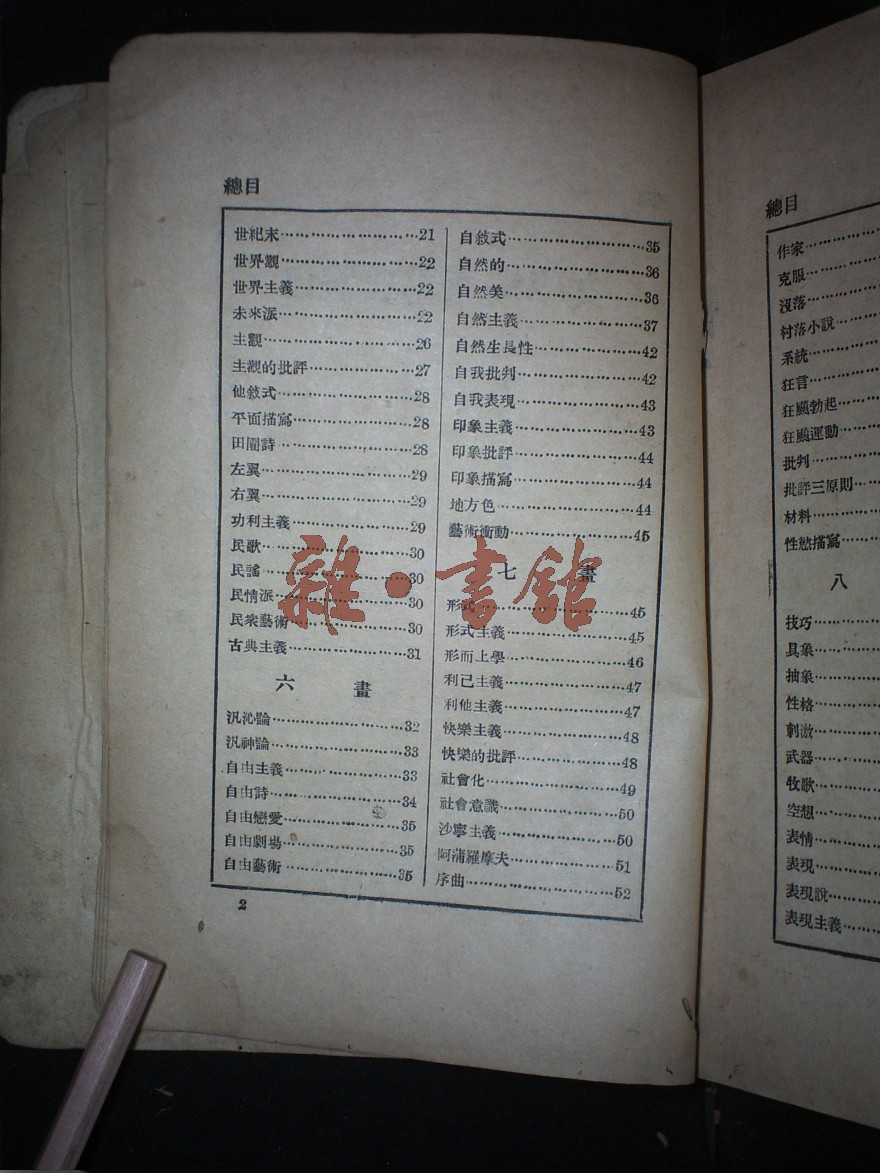 總目
世紀末……21
世界觀……22
世界主義……22
未來派……22
主觀……26
主觀的批評……27
他敘式……28
平面描寫……28
田園詩……28
左翼……29
右翼……29
功利主義……29
民歌……30
民謠……30
民情派……30
民衆藝術……30
古典主義……31
六 畫
汎沁論……32
汎神論……33
自由主義……33
自由詩……34
自由戀愛……35
自由劇場……35
自由藝術……35
自敘式……35
自然的……36
自然美……36
自然主義……37
自然生長性……42
自我批判……42
自我表現……43
印象主義……43
印象批評……44
印象描寫……44
地方色……44
藝術衝動……45
七 畫
形式……45
形式主義……45
形而上學……46
利己主義……47
利他主義……47
快樂主義……48
快樂的批評……48
社會化……49
社會意識……50
沙寧主義……50
阿蒲羅摩夫……51
序曲……52
2
總目
作家……
克服……
沒落……
村落小說……
系統……
狂言……
狂飈勃起……
狂飈運動……
批判……
批評三原則……
材料……
性慾描寫……
八
技巧……
具象……
抽象……
性格……
刺激……
武器……
牧歌……
空想……
表情……
表現……
表現說……
表現主義……
雜·書館